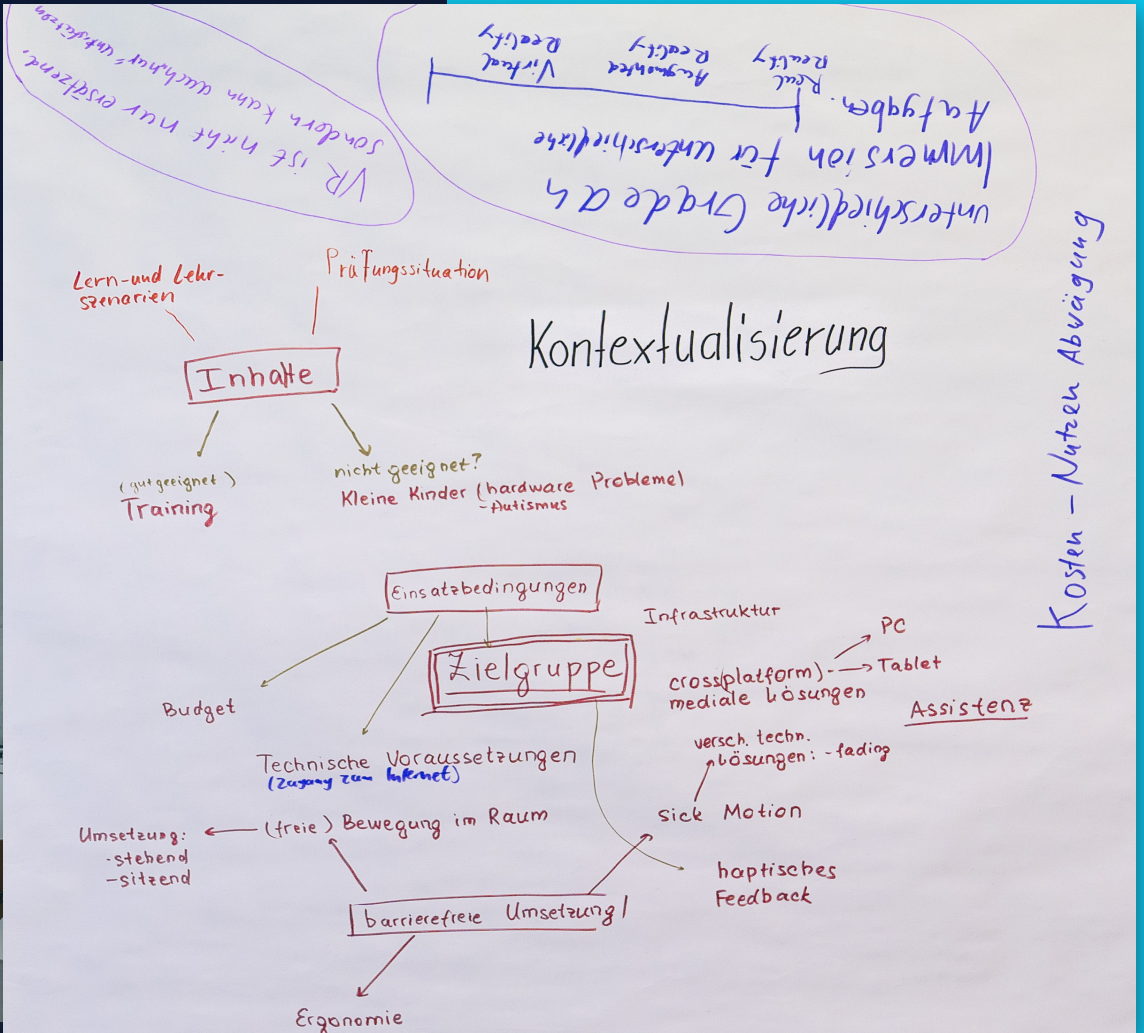 VR ist nicht nur ersätzend,
sondern kann auch nur "unterstützen
unterschiedliche Grade an
Immersion für unterschiedliche
Aufgaben.
Real
Reality
Augmented
Reality
Virtual
Reality
Lern-und Lehr-
szenarien
Prüfungssituation
Kontextualisierung
Kosten - Nutzen Abwägung
Inhalte
(gut geeignet)
Training
nicht geeignet?
Kleine Kinder (hardware Probleme)
-Autismus
Einsatzbedingungen
Zielgruppe
Infrastruktur
PC
cross(platform)- Tablet
mediale Lösungen
Assistenz
Budget
Technische Voraussetzungen
(Zugang zum Internet)
versch. techn.
Lösungen: - fading
sick Motion
(freie) Bewegung im Raum
Umsetzung:
-stehend
-sitzend
haptisches
Feedback
barrierefreie Umsetzung
Ergonomie